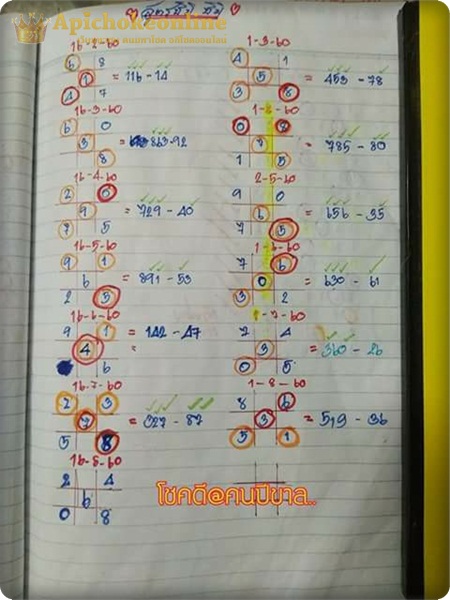 Apichokeonline
สูตรชีวิ ชีวิ
16-2-60
6 8
1 = 116-14
4 7
16-3-60
6 0
3 = 863-92
8
16-4-60
2 0
9 = 729-40
7 5
16-5-60
9 1
6 = 891-53
2 5
16-6-60
9 1
4 = 142-47
6
16-7-60
2 3
7 = 327-87
5 8
16-8-60
2 4
6
0 8
1-3-60
4 1
5 = 453-78
3 8
0
7 = 785-80
1 5
2-5-60
9 0
6 = 656-35
7 5
1-6-60
7 6
0 = 630-61
3 2
1-7-60
7 4
3 = 360-26
0 5
1-8-60
8 6
3 = 519-36
5 1
โชคดี@คนปีขาล..